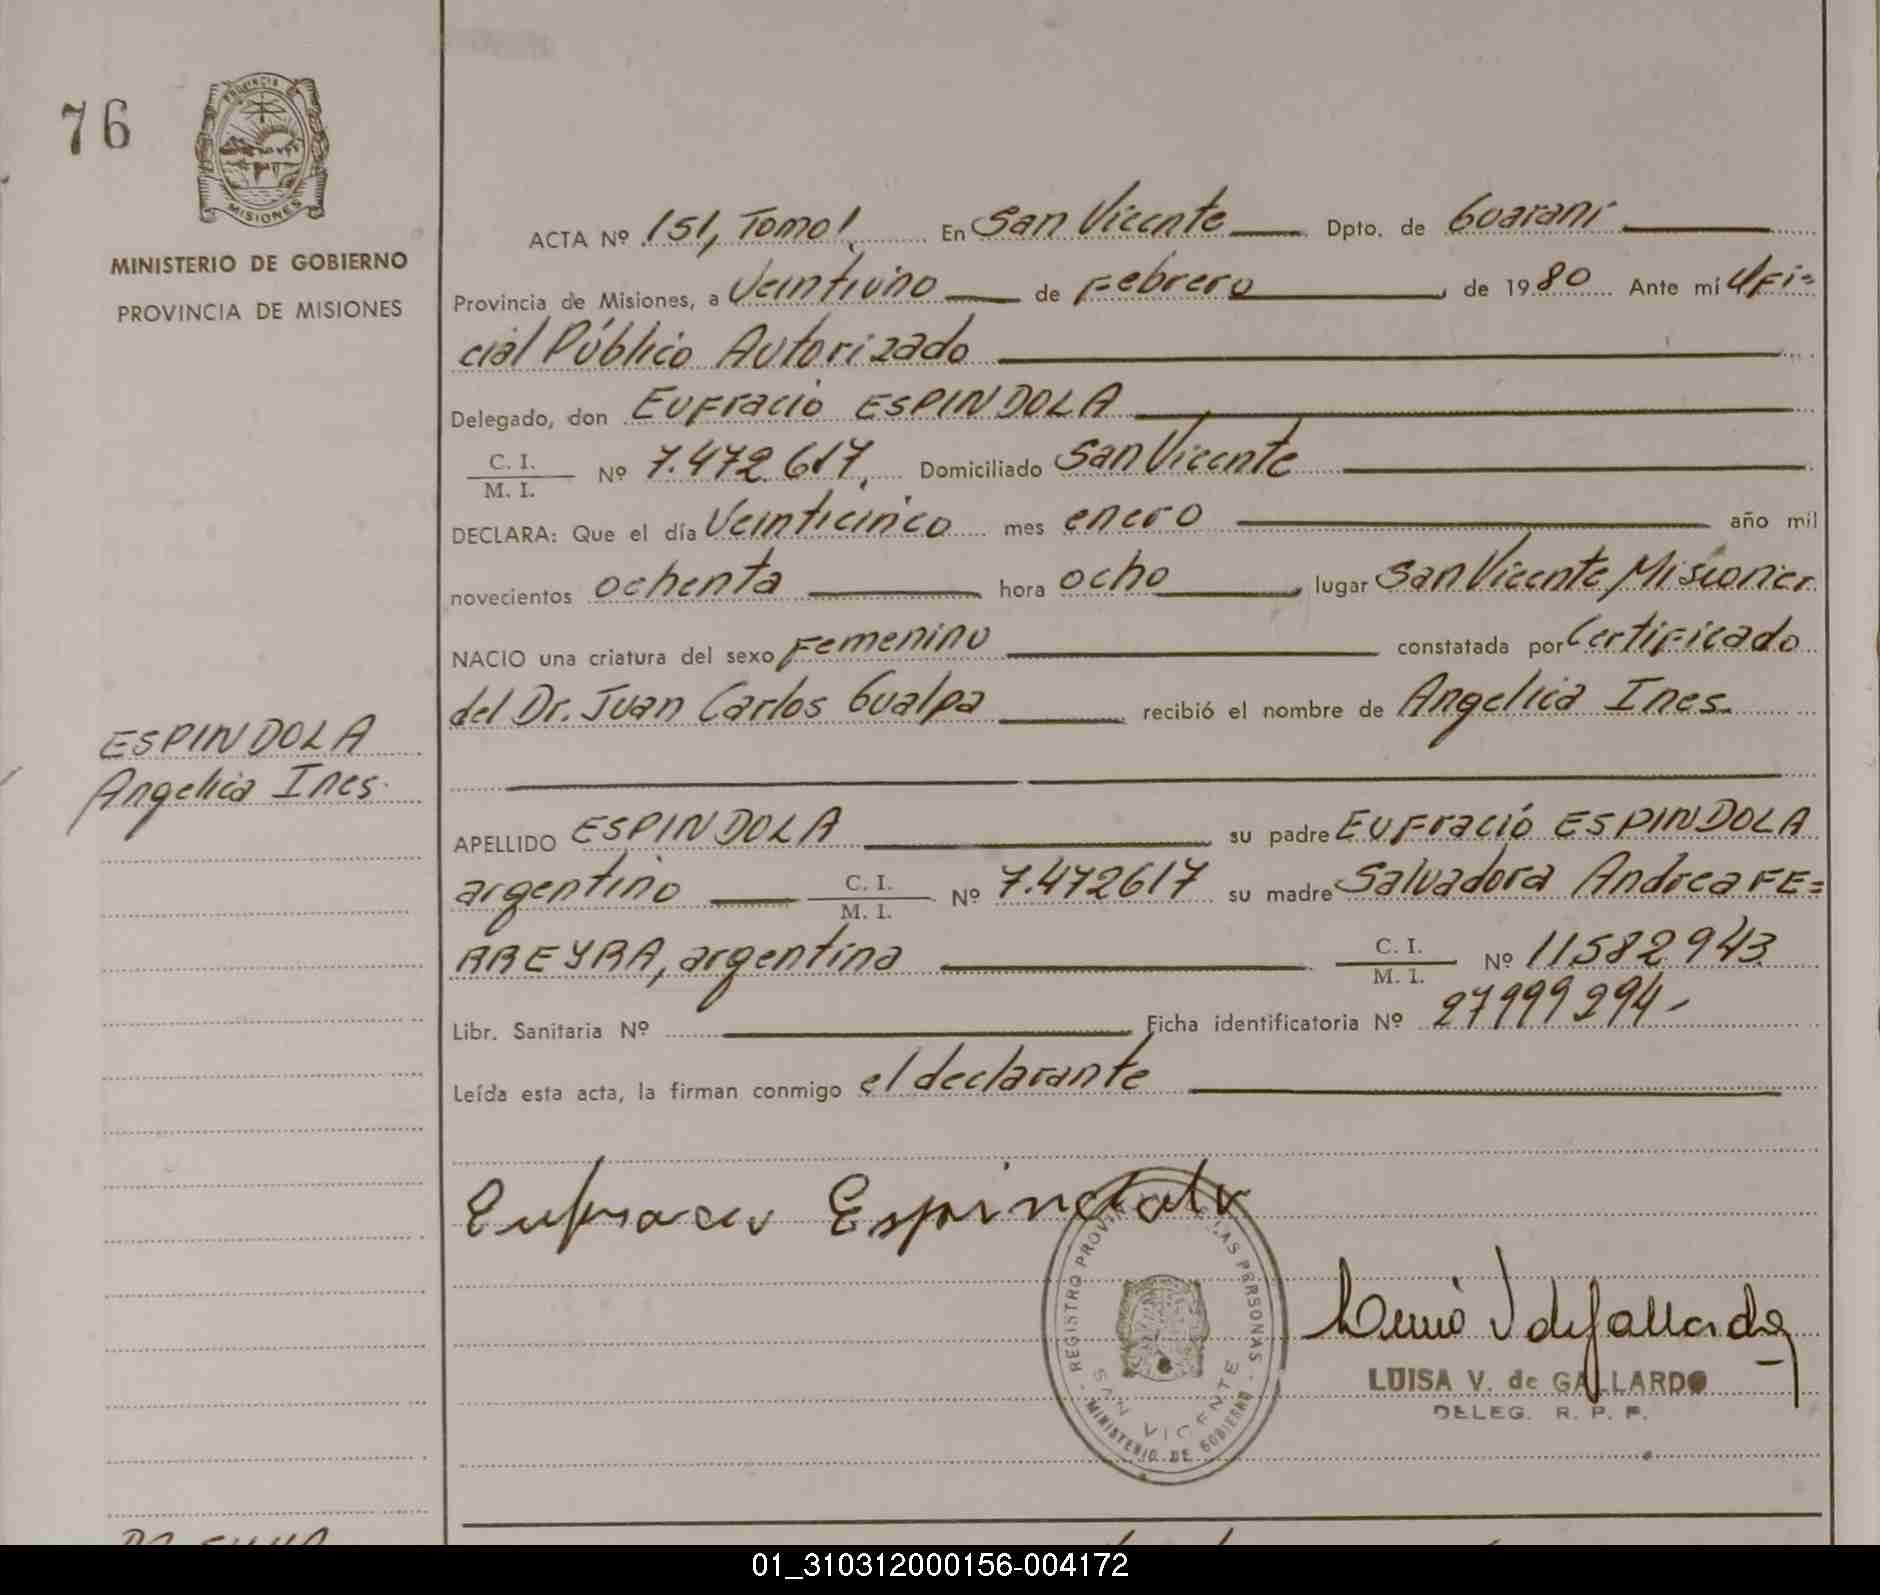 76
PROVINCIA
MISIONES
MINISTERIO DE GOBIERNO
PROVINCIA DE MISIONES
ESPINDOLA
Angelica Ines.
ACTA Nº 151, Tomo 1, En San Vicente Dpto. de Guarani
Provincia de Misiones, a Veintiuno de Febrero de 1980 Ante mi Ofi=
cial Público Autorizado
Delegado, don Eufracio ESPINDOLA
C. I.
M. I. Nº 7.472.617, Domiciliado San Vicente
DECLARA: Que el día Veinticinco mes enero año mil
novecientos ochenta hora ocho, lugar San Vicente Misiones
NACIO una criatura del sexo Femenino constatada por Certificado
del Dr. Juan Carlos Gualpa recibió el nombre de Angelica Ines.
APELLIDO ESPINDOLA su padre Eufracio ESPINDOLA
argentino C. I.
M. I. Nº 7.472617 su madre Salvadora Andrea FE=
RREYRA, argentina C. I.
M. I. Nº 11.582.943
Libr. Sanitaria Nº Ficha identificatoria Nº 27999294-
Leída esta acta, la firman conmigo el declarante
Eufracio Espindola
REGISTRO LAS PERSONAS
SAN VICENTE
MINISTERIO DE GOBIERNO
LUISA V. de GALLARDO
DELEG. R. P. P.
01_310312000156-004172